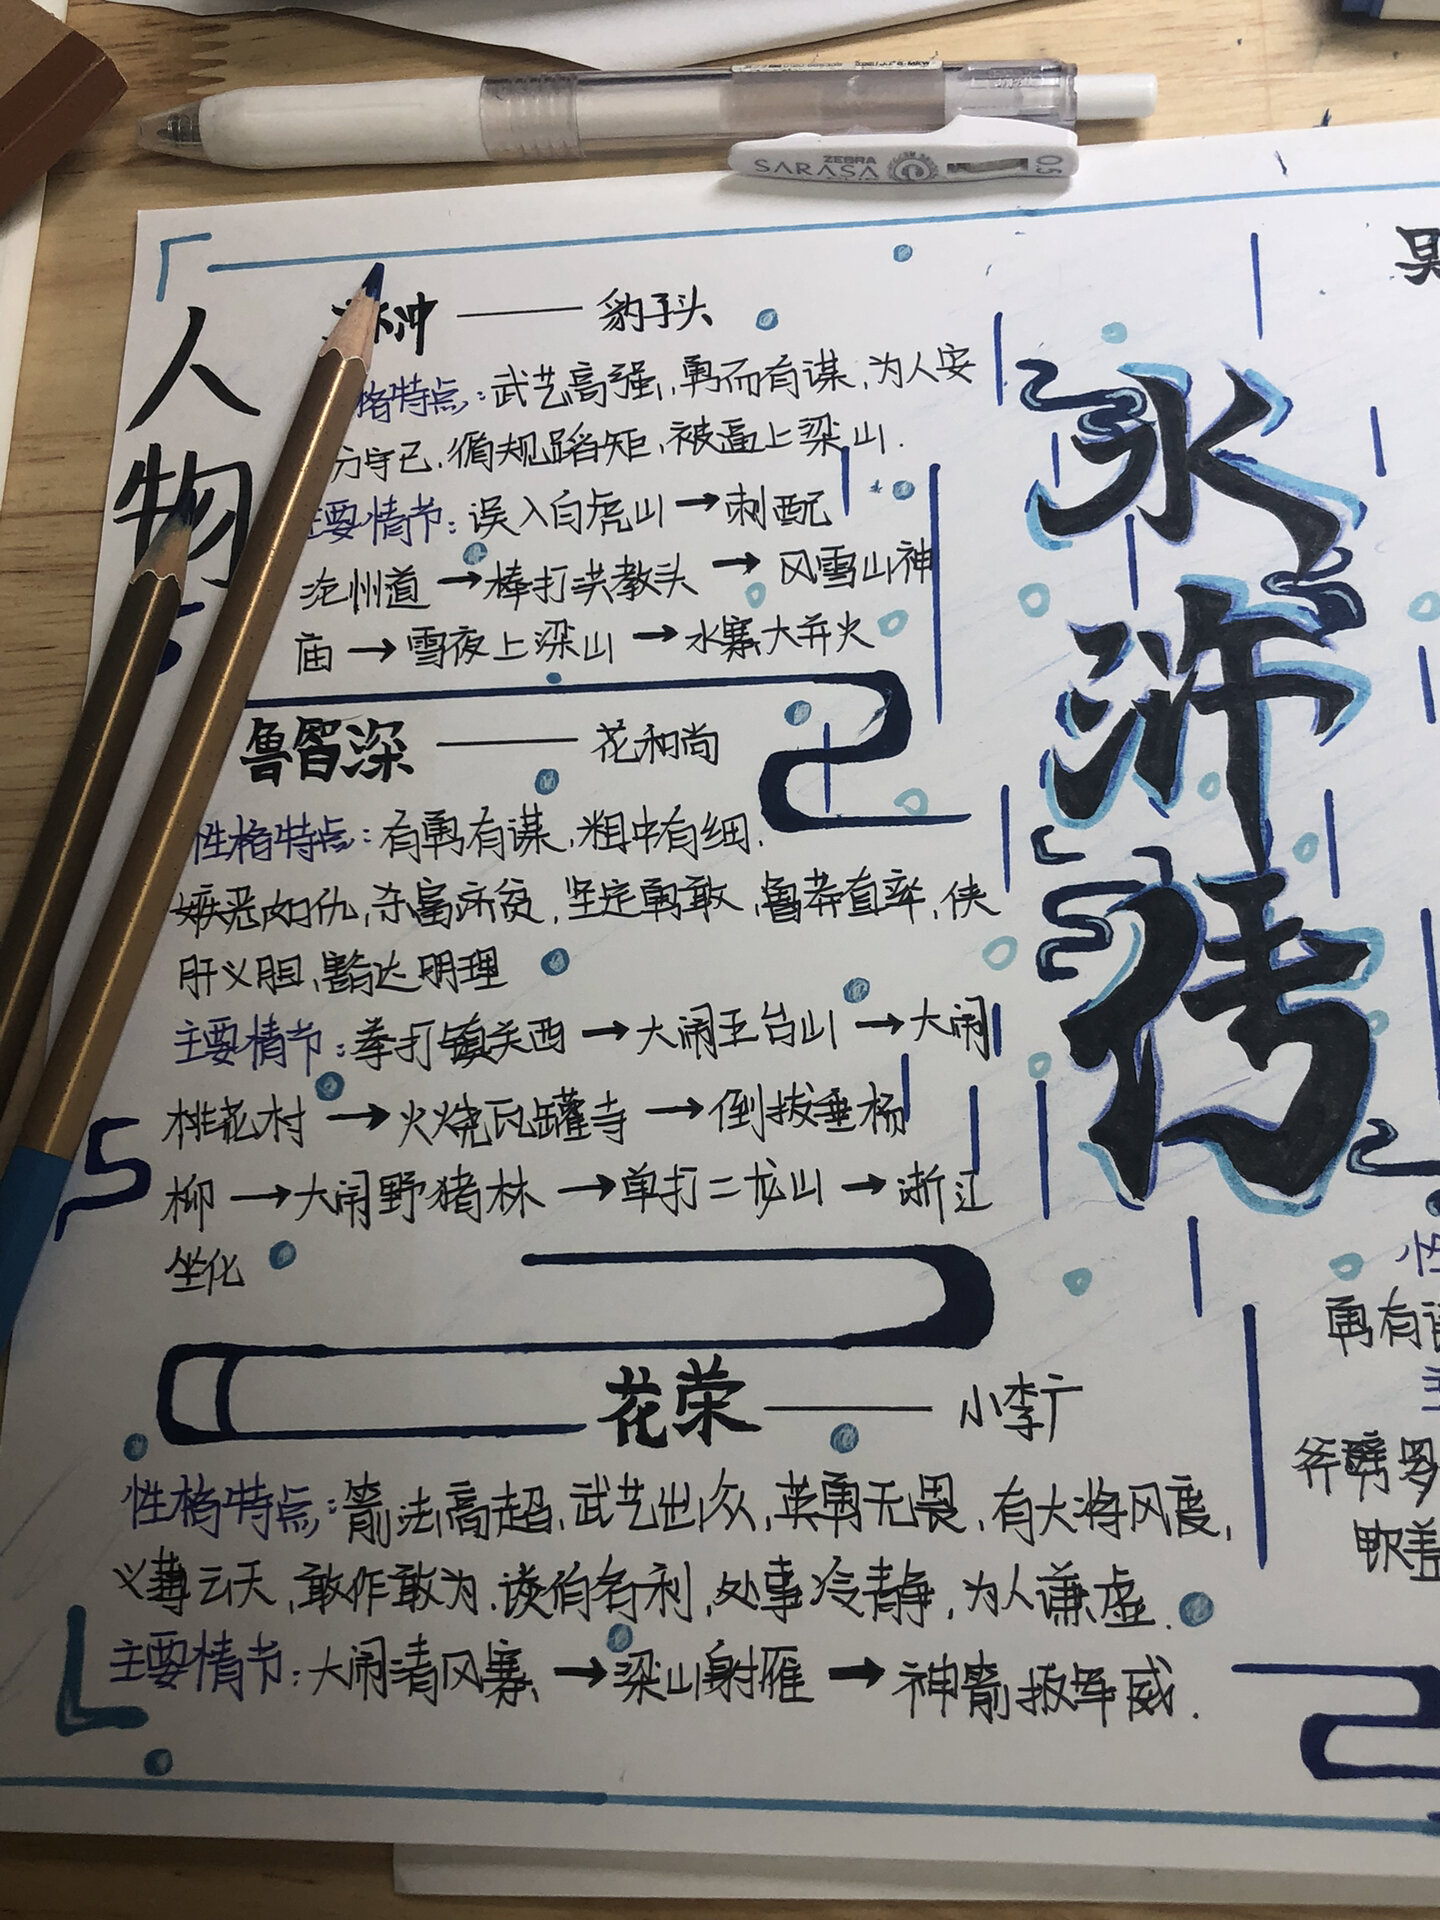 ZEBRA
SARASA
0.5
人物
冲——豹子头
格特点:武艺高强,勇而有谋,为人安
分守己.循规蹈矩,被逼上梁山.
主要情节:误入白虎山→刺配
沧州道→棒打洪教头→风雪山神
庙→雪夜上梁山→水寨大并火
鲁智深——花和尚
性格特点:有勇有谋,粗中有细.
嫉恶如仇,杀富济贫,坚定勇敢,鲁莽直率,侠
肝义胆,豁达明理
主要情节:拳打镇关西→大闹五台山→大闹
桃花村→火烧瓦罐寺→倒拔垂杨
柳→大闹野猪林→单打二龙山→浙江
坐化
花荣——小李广
性格特点:箭法高超,武艺出众,英勇无畏,有大将风度,
义薄云天,敢作敢为.淡泊名利,处事冷静,为人谦虚.
主要情节:大闹清风寨→梁山射雁→神箭扳军威.
水浒传
吴
性
勇有谋
主
斧劈罗